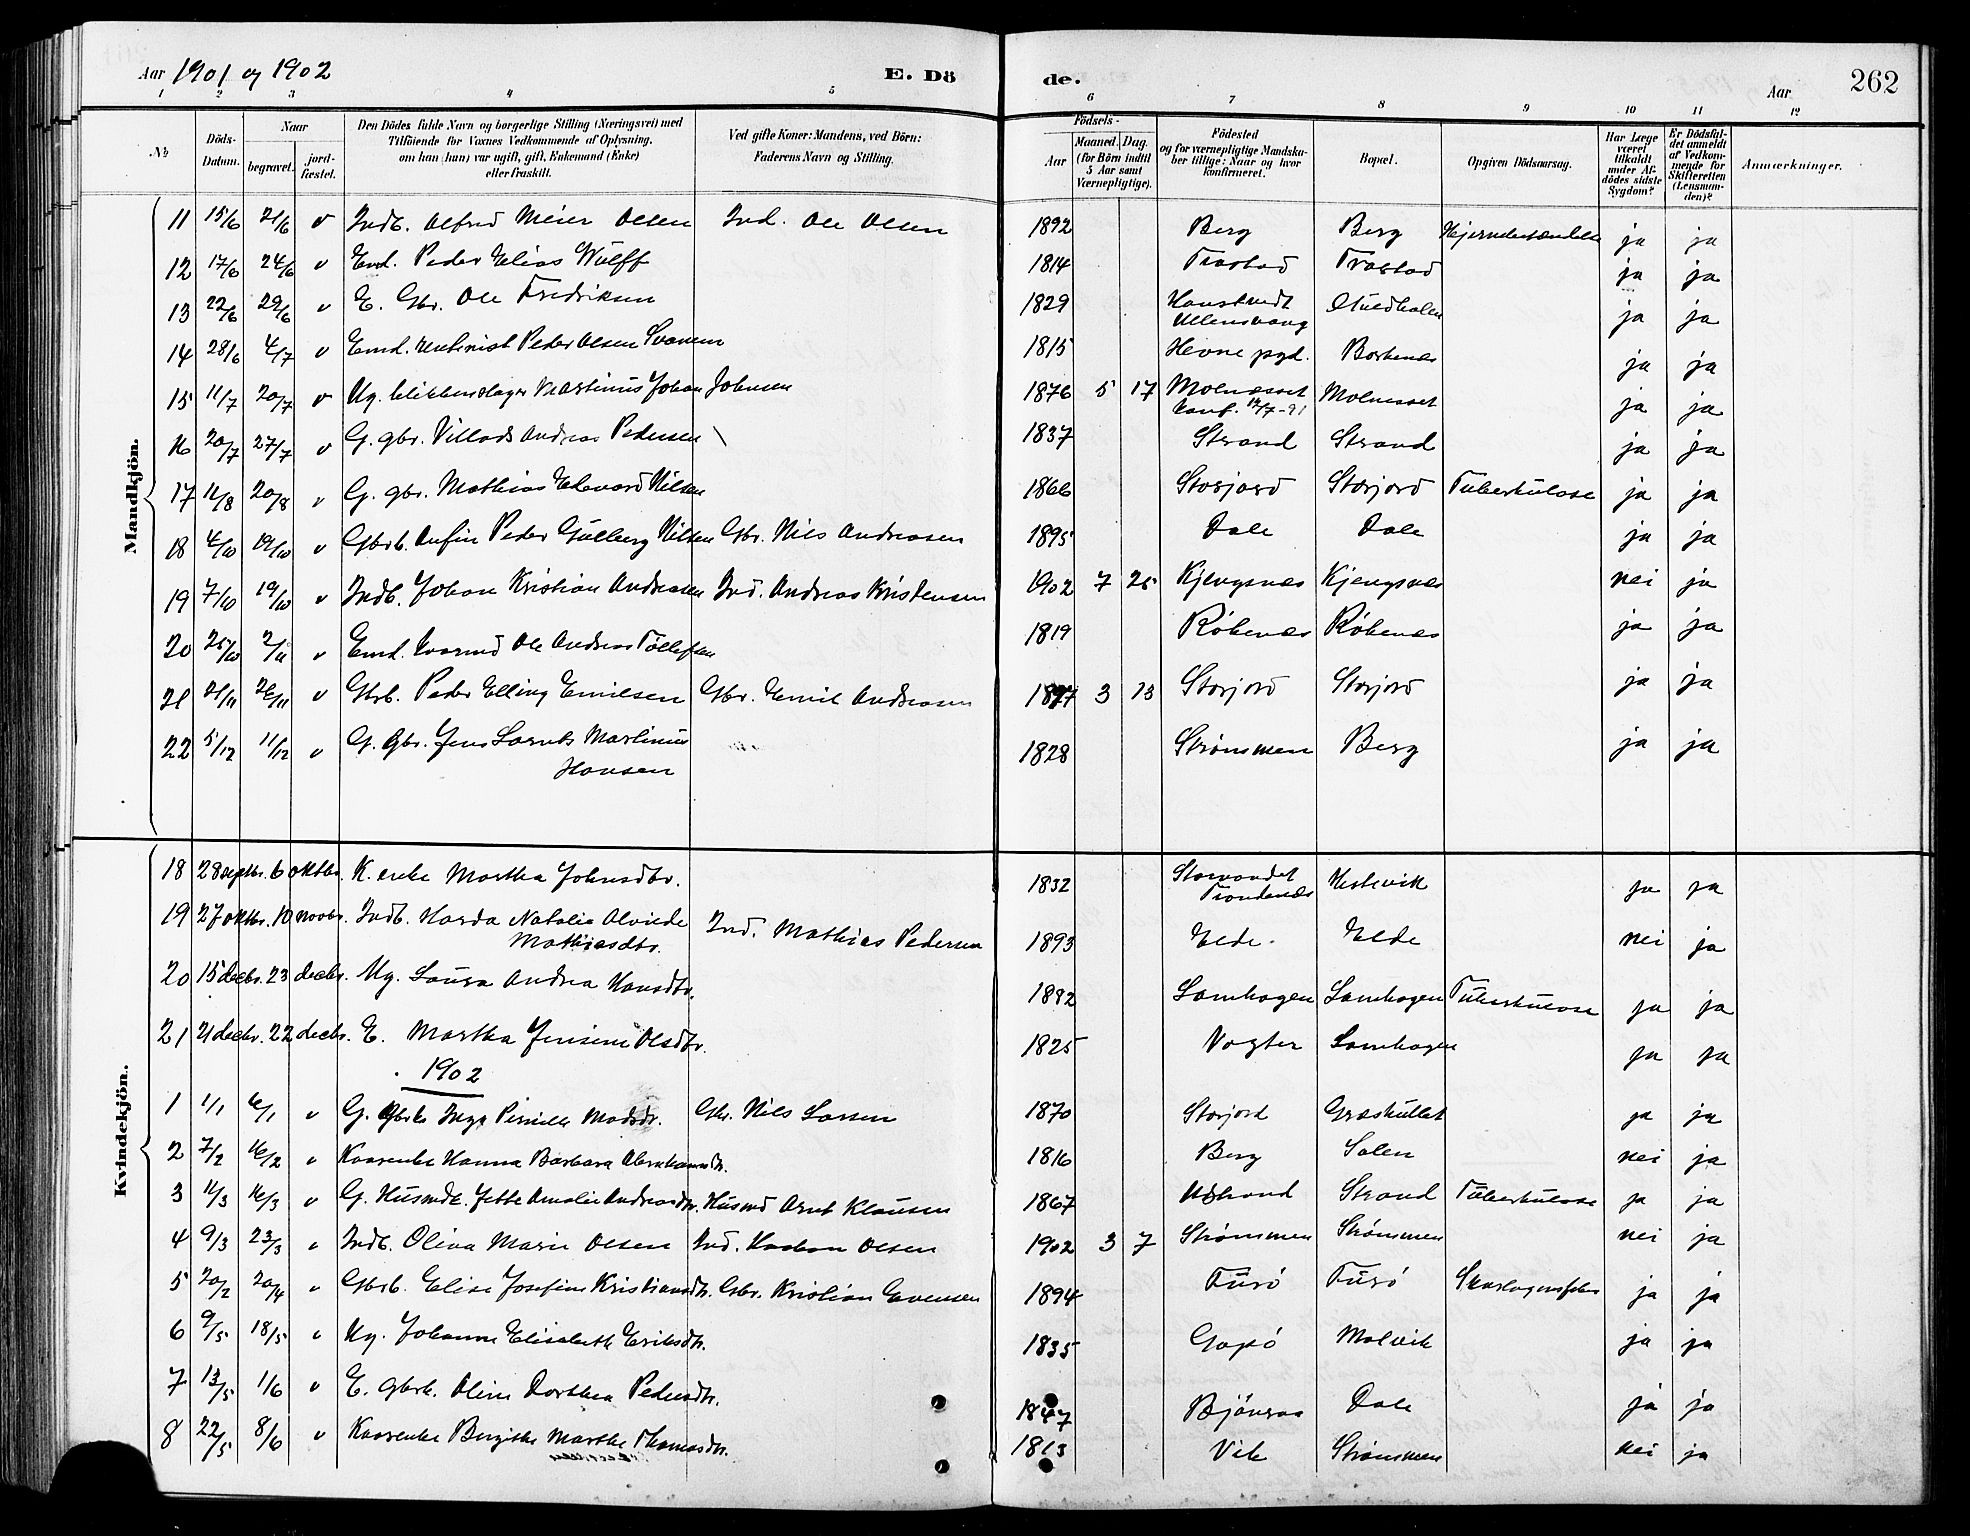 Aar 1901 og 1902
E. Dö
de.
Aar
262
1 2 3 4 5 6 7 8 9 10 11 12
No
Döds-Datum.
Naar
begravet.
jord-fæstet.
Den Dödes fulde Navn og borgerlige Stilling (Næringsvei) med
Tilföiende for Voxnes Vedkommende af Oplysning,
om han (hun) var ugift, gift, Enkemand (Enke)
eller fraskilt.
Ved gifte Koner: Mandens, ved Börn:
Faderens Navn og Stilling.
Födsels-
Aar
Maaned. Dag.
(for Börn indtil
5 Aar samt
Værnepligtige).
Födested
og for værnepligtige Mandska-
ber tillige: Naar og hvor
konfirmeret.
Bopæl.
Opgiven Dödsaarsag.
Har Læge
været
tilkaldt
under Af-
dödes sidste
Sygdom?
Er Dödsfal-
det anmeldt
af Vedkom-
mende for
Skifteretten
(Lensman-
den)?
Anmærkninger.
Mandkjön.
11 15/6 21/6 v Indb. Alfred Meier Olsen Ind. Ole Olsen 1892 Berg Berg ja ja
12 17/6 24/6 v Emd. Peder Elias Wulff 1814 Trastad Trastad ja ja
13 22/6 29/6 v E. Gbr. Ole Fredriksen 1829 Ullensvang ja ja
14 28/6 4/7 v Emd. Peder Olsen 1815 Hevne pgd. Borkenes ja ja
15 11/7 20/7 v Ug. Martinus Johan Johnsen 1876 5 17 Molnesset konf. 12/7-91 Molnesset ja ja
16 20/7 27/7 v G. gbr. Villads Andreas Pedersen 1837 Strand Strand ja ja
17 11/8 20/8 v G. gbr. Mathias Edevard Nilsen 1866 Storjord Storjord Tuberkulose ja ja
18 4/10 19/10 v Gbrb. Anfin Peder Gulberg Nilsen Gbr. Nils Andreasen 1895 Dale Dale ja ja
19 7/10 19/10 v Indb. Johan Kristian Andreasen Ind. Andreas Kristensen 1902 7 25 Kjengsnes Kjengsnes nei ja
20 25/10 2/11 v Emd. Ole Andreas Tollefsen 1819 Røkenes Røkenes ja ja
21 21/11 26/11 v Gbrb. Peder Elling Emilsen Gbr. Emil Andreasen 1897 3 13 Storjord Storjord ja ja
22 5/12 11/12 v G. Gbr. Jens Lornts Martinus
Hansen 1828 Strømmen Berg ja ja
Kvindekjön.
18 28 septbr. 6 oktbr. K. enke Martha Johnsdtr. 1832 Storvandet
Trondenæs Hestevik ja ja
19 27 oktbr. 10 novbr. Indb. Harda Natalia Alvilde
Mathiasdtr. Ind. Mathias Pedersen 1893 Elde Elde nei ja
20 15 decbr. 23 decbr. Ug. Laura Andrea Hansdtr. 1882 Lamhagen Lamhagen Tuberkulose ja ja
21 21 decbr. 22 decbr. E. Martha Jensine Olsdtr. 1825 Vogter Lamhagen ja ja
1902
1 1/1 6/1 v G. gbrk Inga Pernille Madsdr. Gbr. Nils Larsen 1870 Storjord Græshullet ja ja
2 7/2 16/2 v Kaarenke Hanna Barbara Abrahamsdtr. 1816 Berg Salen nei ja
3 11/3 16/3 v G. Husmdk. Jette Amalie Andreasdtr. Husmd Arnt Klausen 1867 Strand Tuberkulose ja ja
4 9/3 23/3 v Indb. Oliva Marie Olsen Ind. Haakon Olsen 1902 3 7 Strømmen Strømmen nei ja
5 20/2 20/4 v Gbrb. Elise Josefine Kristiansdtr. Gbr. Kristian Evensen 1894 Fusø Fusø Skarlagensfeber ja ja
6 9/5 18/5 v Ug. Johanne Elisabeth Eriksdtr. 1835 Gapø Molvik ja ja
7 13/5 1/6 v E. gbrk. Oline Dorthea Pedersdtr. 1847 Bjönraa Dale ja ja
8 22/5 8/6 v Kaarenke Birgitte Marthe Thomasdtr. 1813 Vik Strømmen nei ja